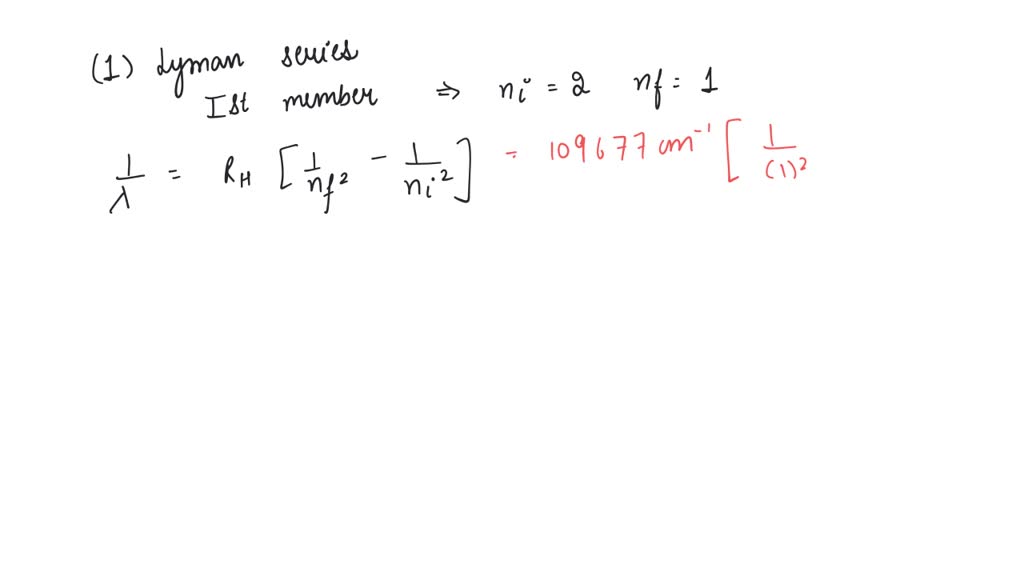 (1) Lyman series
Ist member ⇒ ni = 2 nf = 1
1/λ = RH [1/nf² − 1/ni²] = 109677 cm⁻¹ [1/(1)²